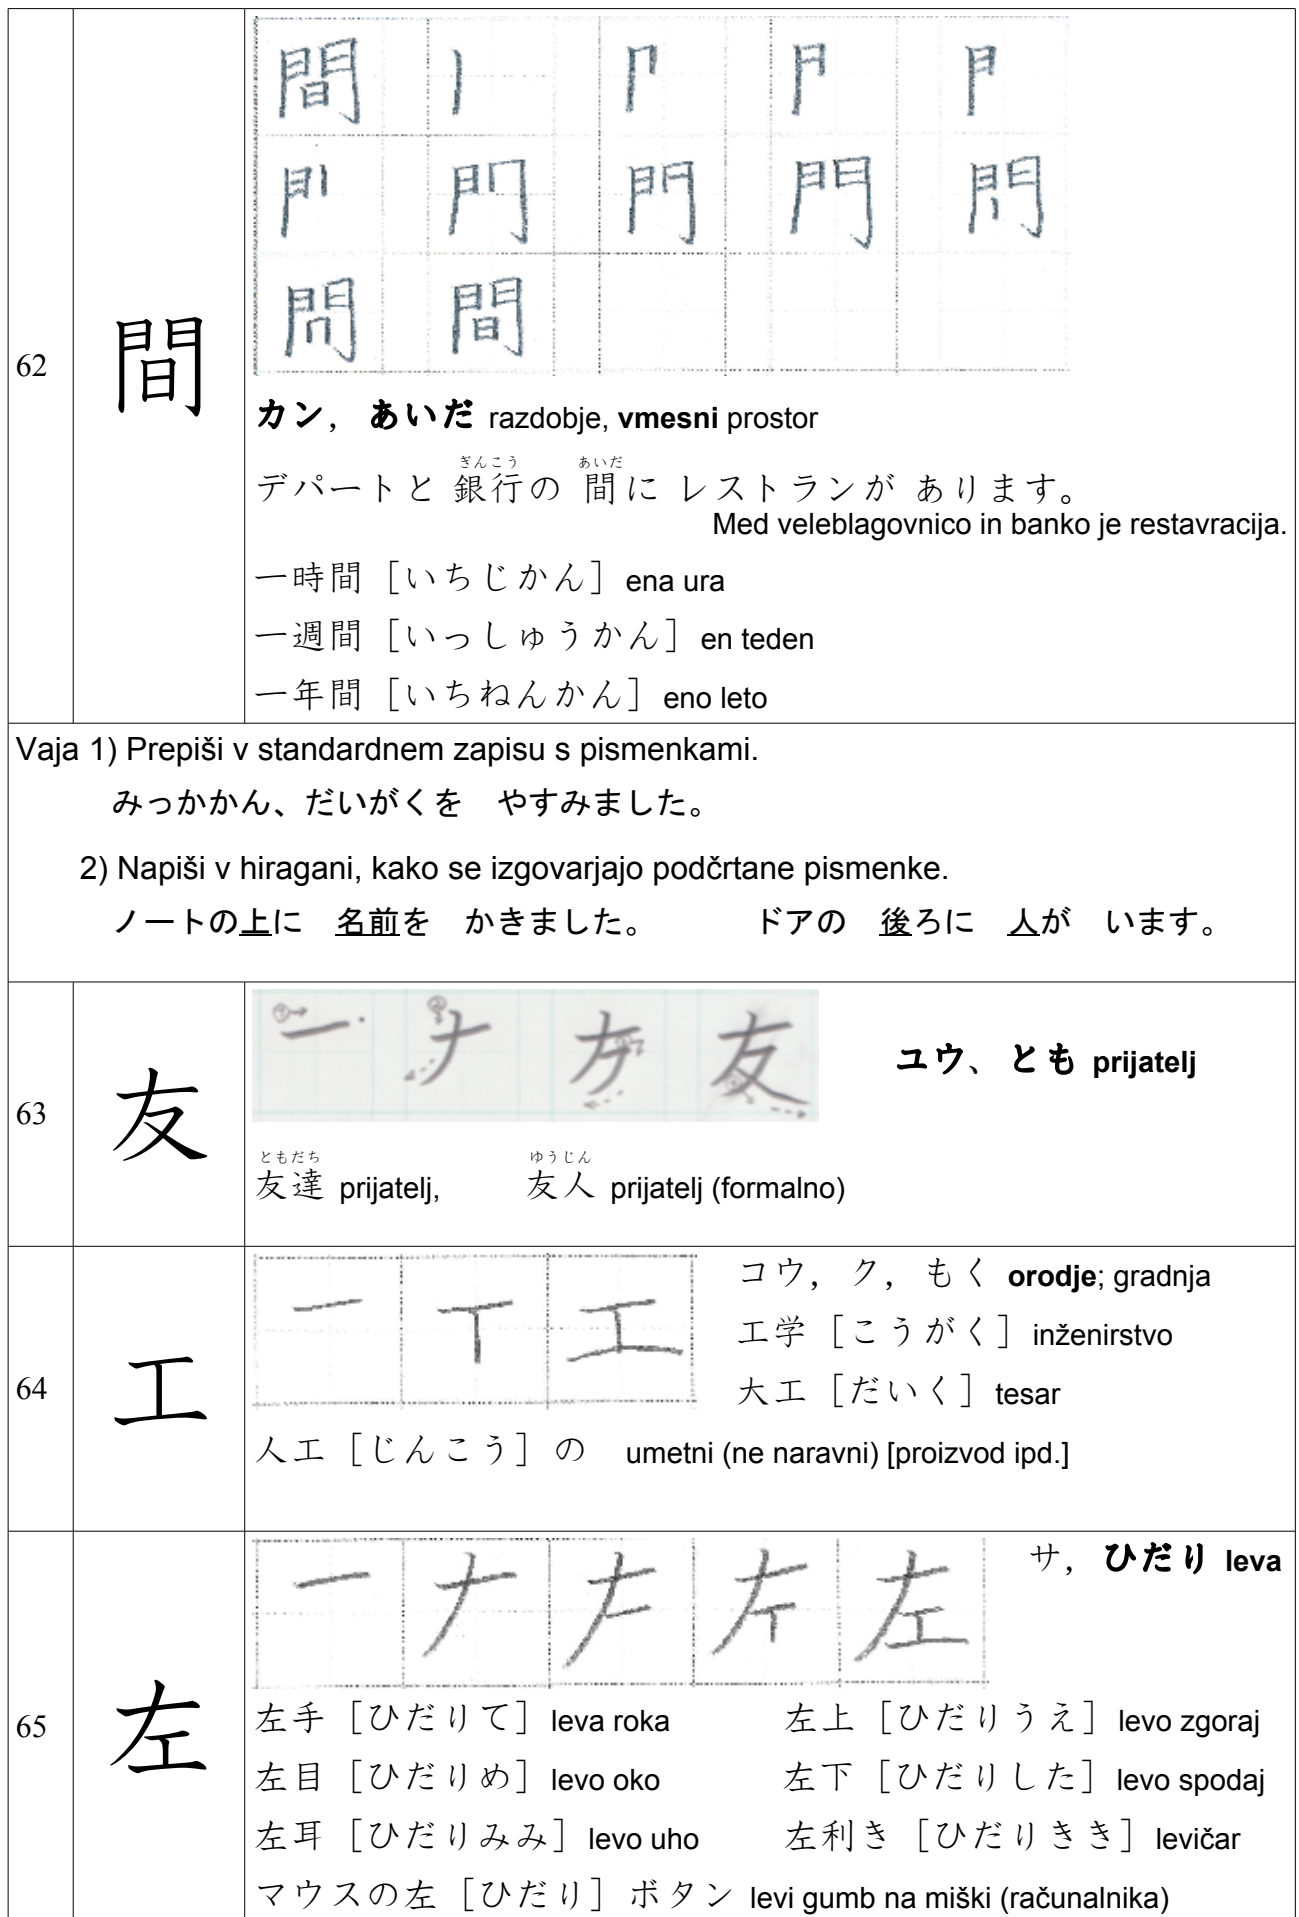 62
間
カン, あいだ razdobje, vmesni prostor
ぎんこう あいだ
デパートと 銀行の 間に レストランが あります。
Med veleblagovnico in banko je restavracija.
一時間［いちじかん］ena ura
一週間［いっしゅうかん］en teden
一年間［いちねんかん］eno leto
Vaja 1) Prepiši v standardnem zapisu s pismenkami.
みっかかん、だいがくを　やすみました。
2) Napiši v hiragani, kako se izgovarjajo podčrtane pismenke.
ノートの上に　名前を　かきました。　　　ドアの　後ろに　人が　います。
63
友
ユウ、とも prijatelj
ともだち ゆうじん
友達 prijatelj, 友人 prijatelj (formalno)
64
工
コウ, ク, もく orodje; gradnja
工学［こうがく］inženirstvo
大工［だいく］tesar
人工［じんこう］の umetni (ne naravni) [proizvod ipd.]
65
左
サ, ひだり leva
左手［ひだりて］leva roka 左上［ひだりうえ］levo zgoraj
左目［ひだりめ］levo oko 左下［ひだりした］levo spodaj
左耳［ひだりみみ］levo uho 左利き［ひだりきき］levičar
マウスの左［ひだり］ボタン levi gumb na miški (računalnika)